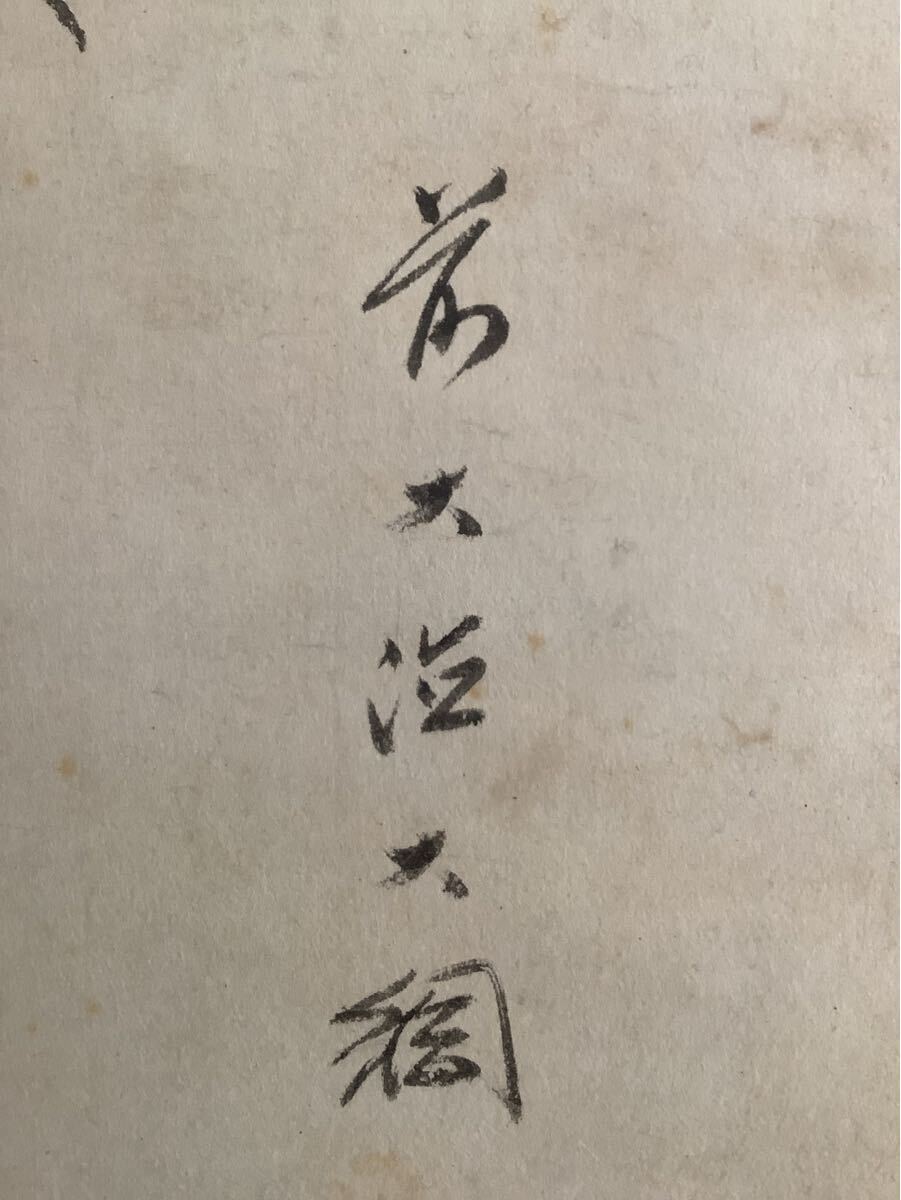 前大徳大綱